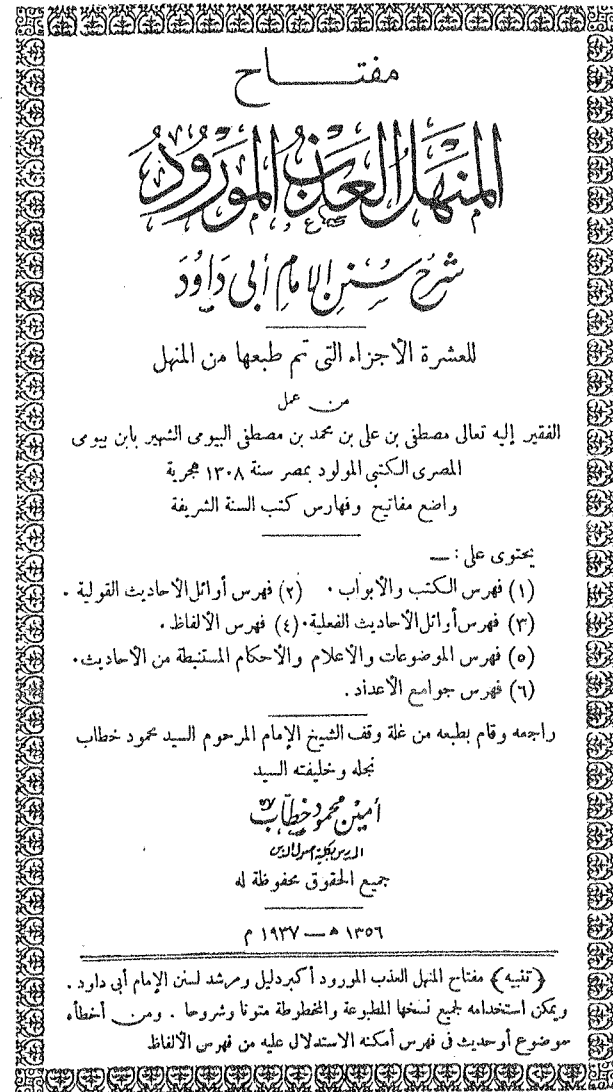 مفتاح
المنهل العذب المورود
شرح سنن الإمام أبي داود
للعشرة الأجزاء التى تم طبعها من المنهل
من عمل
الفقير إليه تعالى مصطفى بن على بن محمد بن مصطفى البيومى الشهير بابن بيومى
المصرى الكتبى المولود بمصر سنة ١٣٠٨ هجرية
واضع مفاتيح وفهارس كتب السنة الشريفة
يحتوى على : —
(١) فهرس الكتب والأبواب . (٢) فهرس أوائل الأحاديث القولية .
(٣) فهرس أوائل الأحاديث الفعلية . (٤) فهرس الألفاظ .
(٥) فهرس الموضوعات والأعلام والأحكام المستنبطة من الأحاديث .
(٦) فهرس جوامع الأعداد .
راجعه وقام بطبعه من غلة وقف الشيخ الإمام المرحوم السيد محمود خطاب
نجله وخليفته السيد
أمين محمود خطاب
المدرس بكلية أصول الدين
جميع الحقوق محفوظة له
١٣٥٦ هـ — ١٩٣٧ م
﴿تنبيه﴾ مفتاح المنهل العذب المورود أكبر دليل ومرشد لسنن الإمام أبى داود .
ويمكن استخدامه لجميع نسخها المطبوعة والمخطوطة متونا وشروحا . ومن أخطأه
موضوع أو حديث فى فهرس أمكنه الاستدلال عليه من فهرس الألفاظ